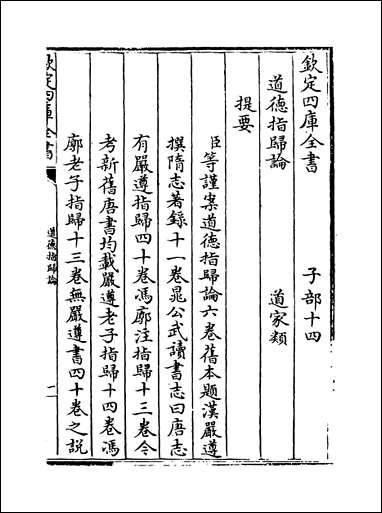 欽定四庫全書
子部十四
道德指歸論
道家類
提要
臣等謹案道德指歸論六卷舊本題漢嚴遵
撰隋志著錄十一卷晁公武讀書志曰唐志
有嚴遵指歸四十卷馮廓注指歸十三卷今
考新舊唐書均載嚴遵老子指歸十四卷馮
廓老子指歸十三卷無嚴遵書四十卷之說
欽定四庫全書
道德指歸論
一